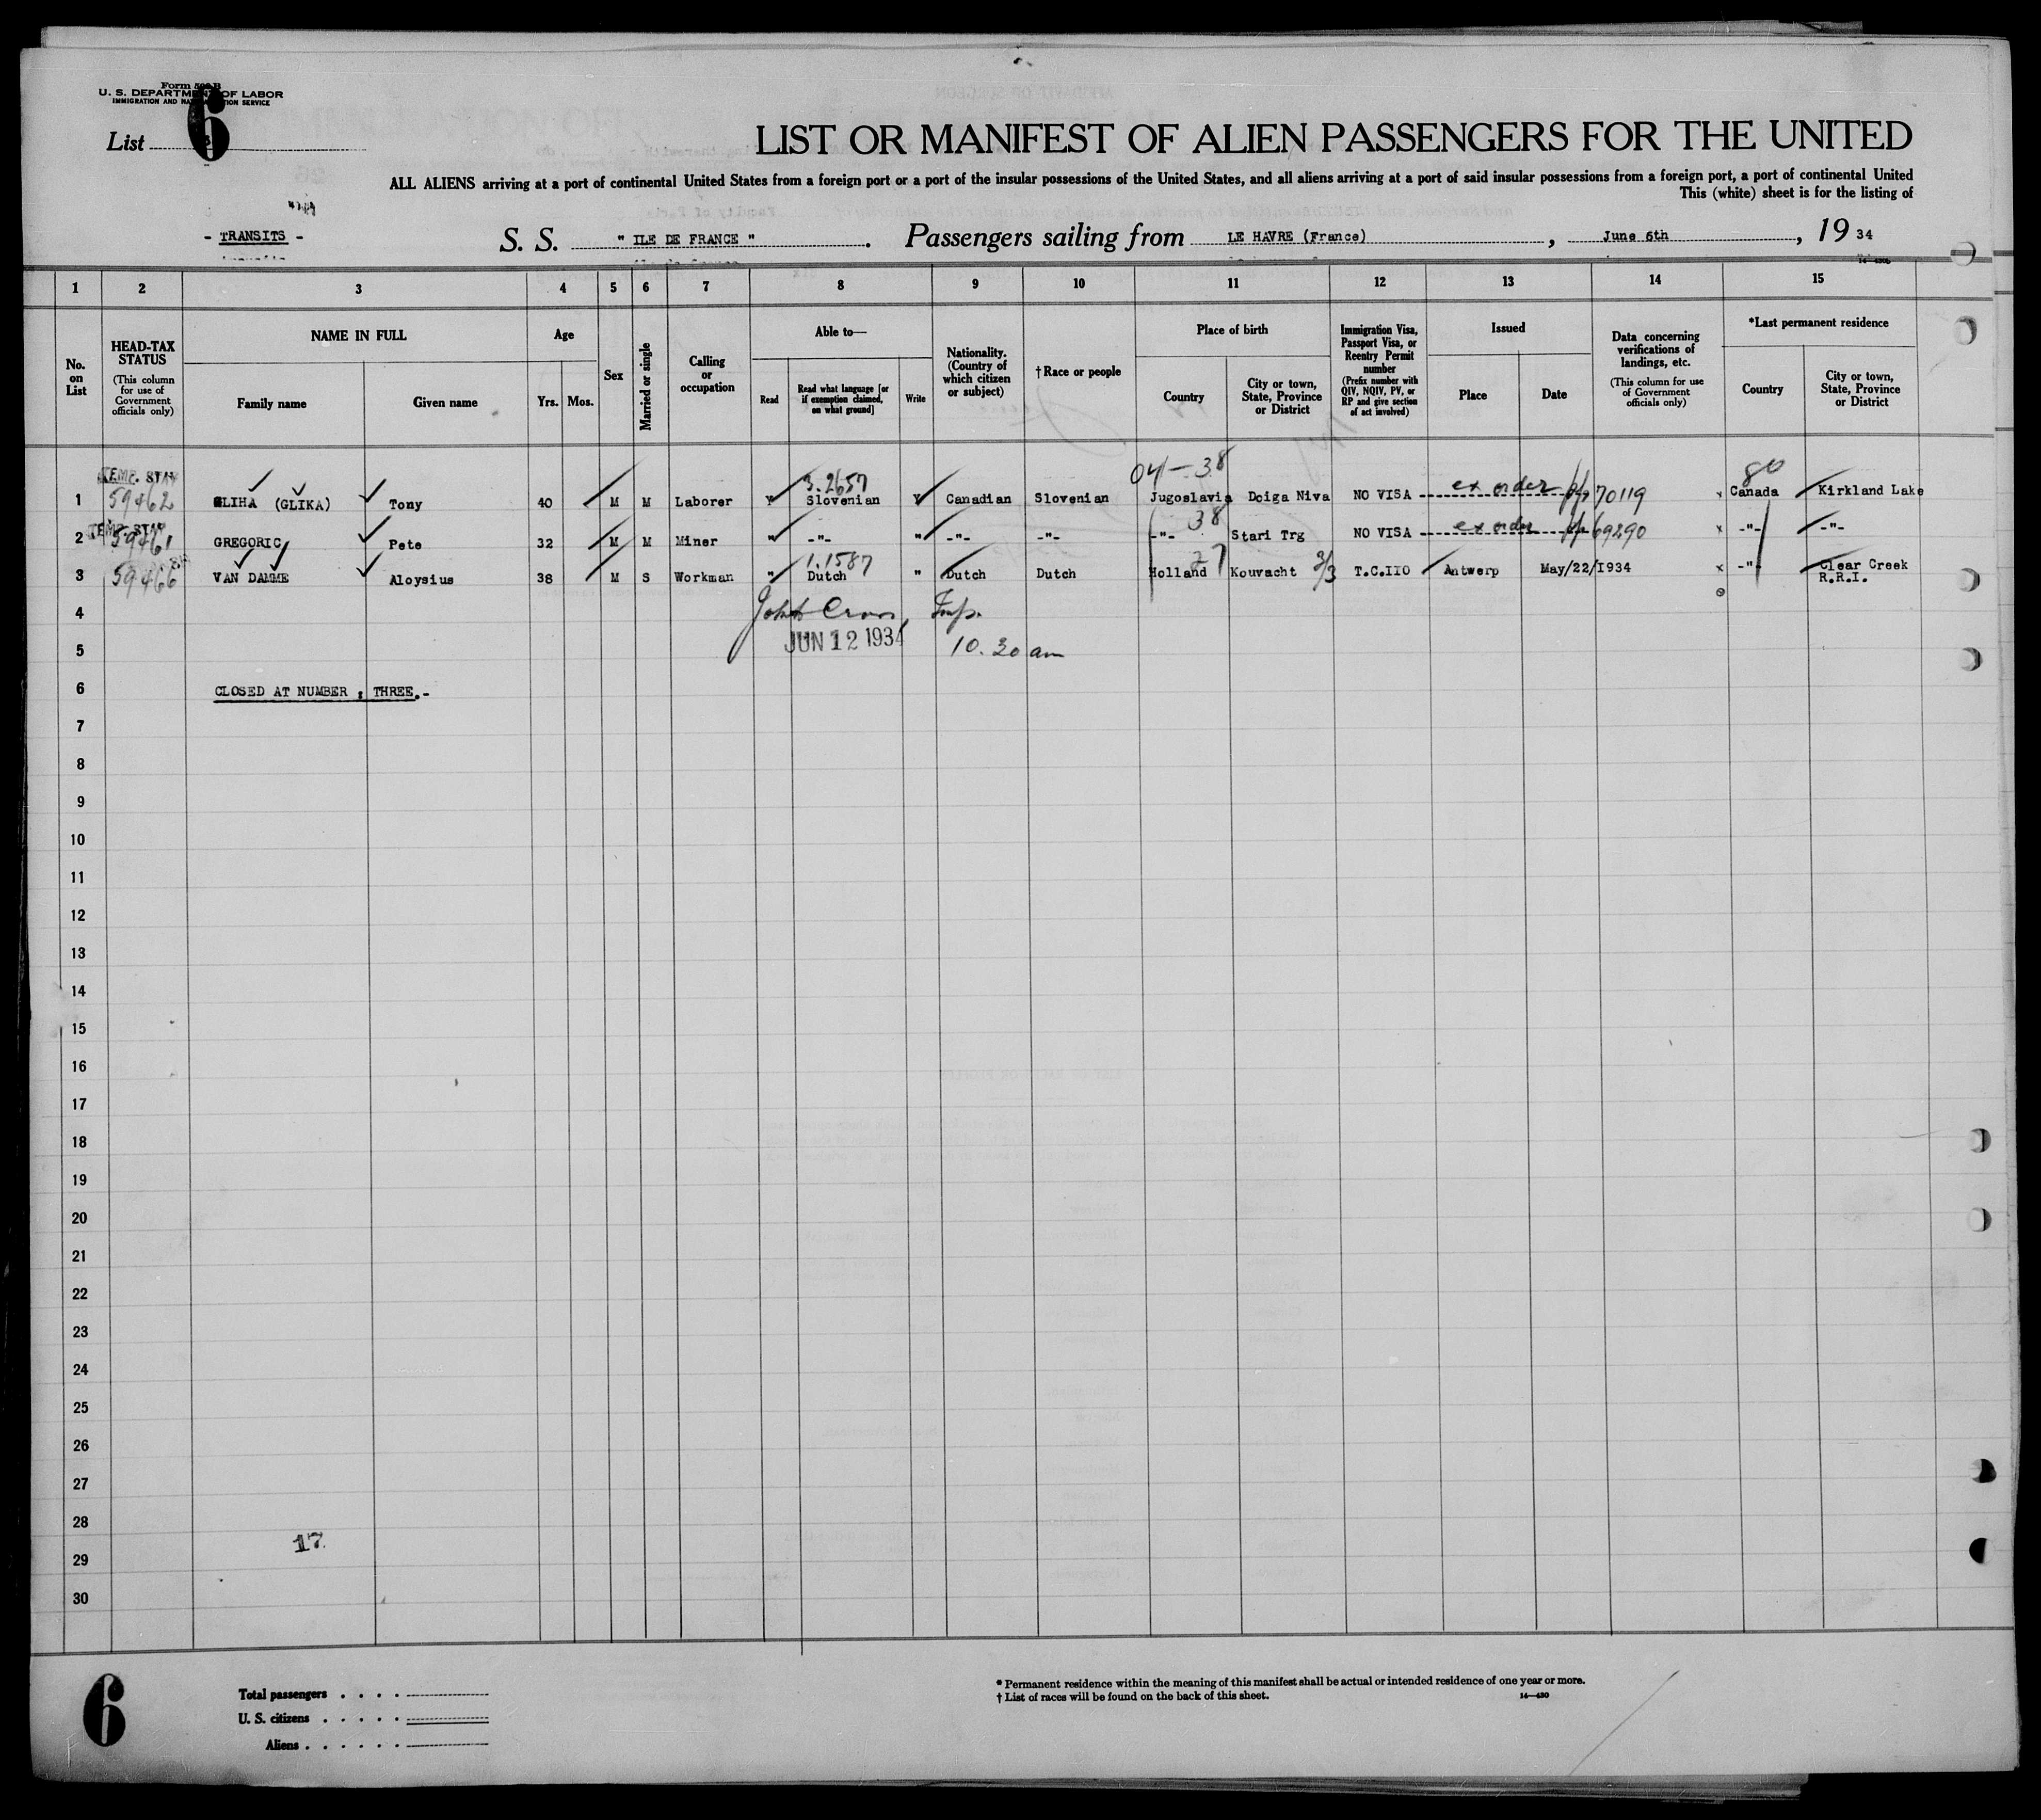 Form 500 B
U. S. DEPARTMENT OF LABOR
IMMIGRATION AND NATURALIZATION SERVICE
List 6
LIST OR MANIFEST OF ALIEN PASSENGERS FOR THE UNITED
ALL ALIENS arriving at a port of continental United States from a foreign port or a port of the insular possessions of the United States, and all aliens arriving at a port of said insular possessions from a foreign port, a port of continental United
This (white) sheet is for the listing of
- TRANSITS -
S. S. " ILE DE FRANCE " . Passengers sailing from LE HAVRE (France) , June 6th , 19 34
1 2 3 4 5 6 7 8 9 10 11 12 13 14 15
No. on List
HEAD-TAX STATUS
(This column for use of Government officials only)
NAME IN FULL
Family name
Given name
Age
Yrs. Mos.
Sex
Married or single
Calling or occupation
Able to—
Read
Read what language [or if exemption claimed, on what ground]
Write
Nationality. (Country of which citizen or subject)
†Race or people
Place of birth
Country
City or town, State, Province or District
Immigration Visa, Passport Visa, or Reentry Permit number
(Prefix number with QIV, NQIV, PV, or RP and give section of act involved)
Issued
Place
Date
Data concerning verifications of landings, etc.
(This column for use of Government officials only)
*Last permanent residence
Country
City or town, State, Province or District
TEMP. STAY 3.2657 04-38 80
1 59462 GLIHA (GLIKA) Tony 40 M M Laborer Y Slovenian Y Canadian Slovenian Jugoslavia Doiga Niva NO VISA ex order p/p 70119 x Canada Kirkland Lake
TEMP. STAY 38
2 59461 GREGORIC Pete 32 M M Miner " -"- " -"- -"- -"- Stari Trg NO VISA ex order p/p 69290 x -"- -"-
1.1587 27
3 59466 VAN DAMME Aloysius 38 M S Workman " Dutch " Dutch Dutch Holland Kouvacht 3/3 T.C.IIO Antwerp May/22/1934 x -"- Clear Creek
R.R.I.
4 John Insp.
5 JUN 12 1934 10.30 am
6 CLOSED AT NUMBER : THREE.-
7
8
9
10
11
12
13
14
15
16
17
18
19
20
21
22
23
24
25
26
27
28
17
29
30
6
Total passengers . . . .
U. S. citizens . . . . .
Aliens . . . . . .
* Permanent residence within the meaning of this manifest shall be actual or intended residence of one year or more.
† List of races will be found on the back of this sheet.
14—430